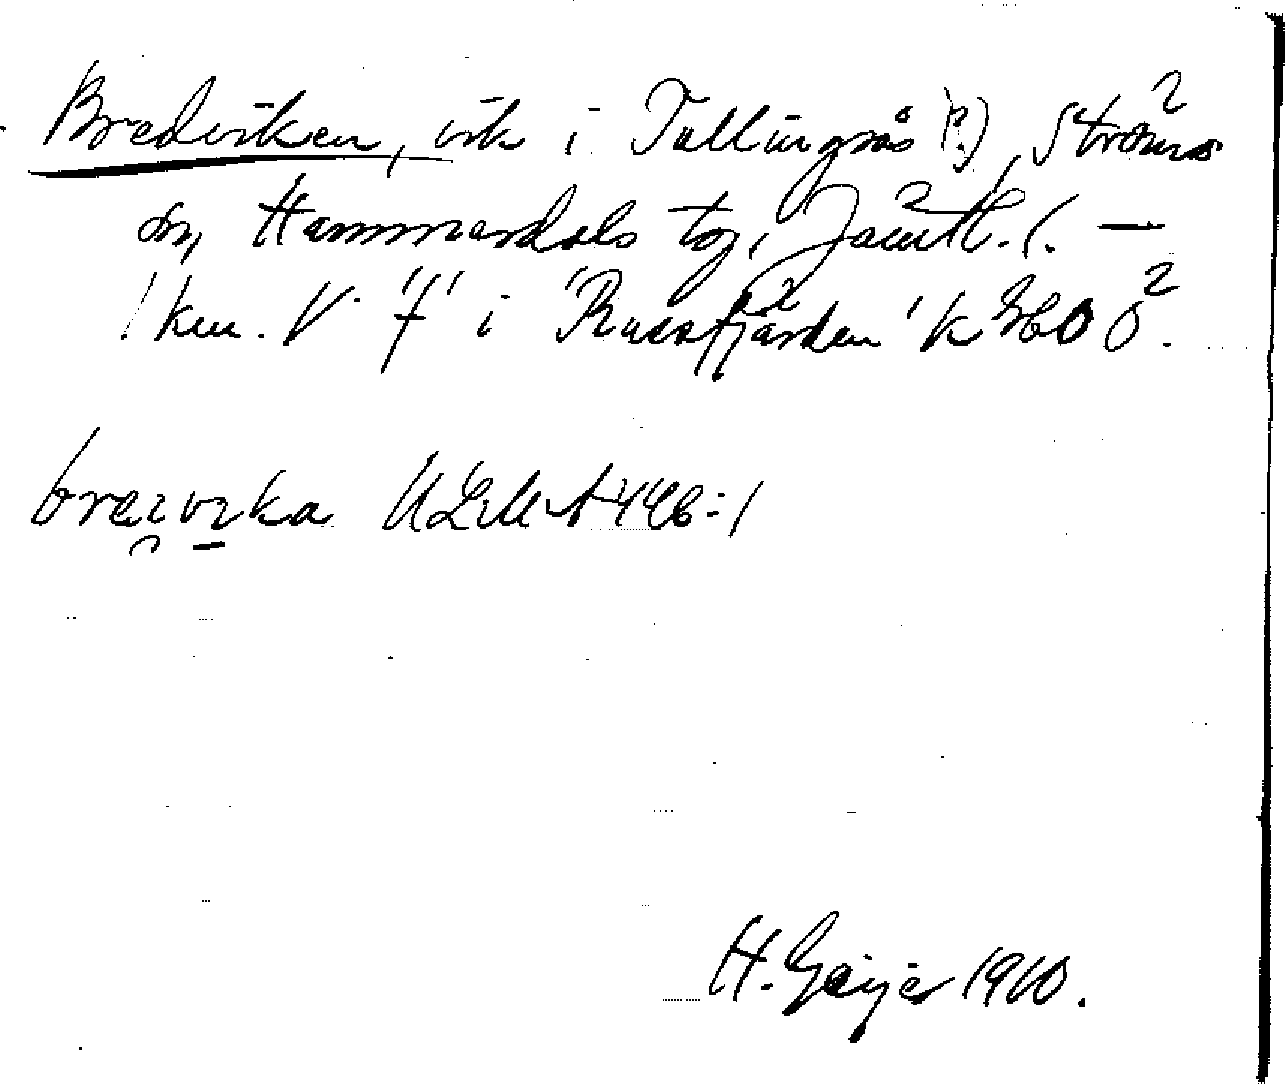 Bredviken, vik i Tullingsås (?), Ströms
sn, Hammerdals tg, Jämtl. l. —
1 km. V 'f' i 'Russfjärden' k GSO Ö.
breivika ULMA 446:1
H. Geijer 1910.